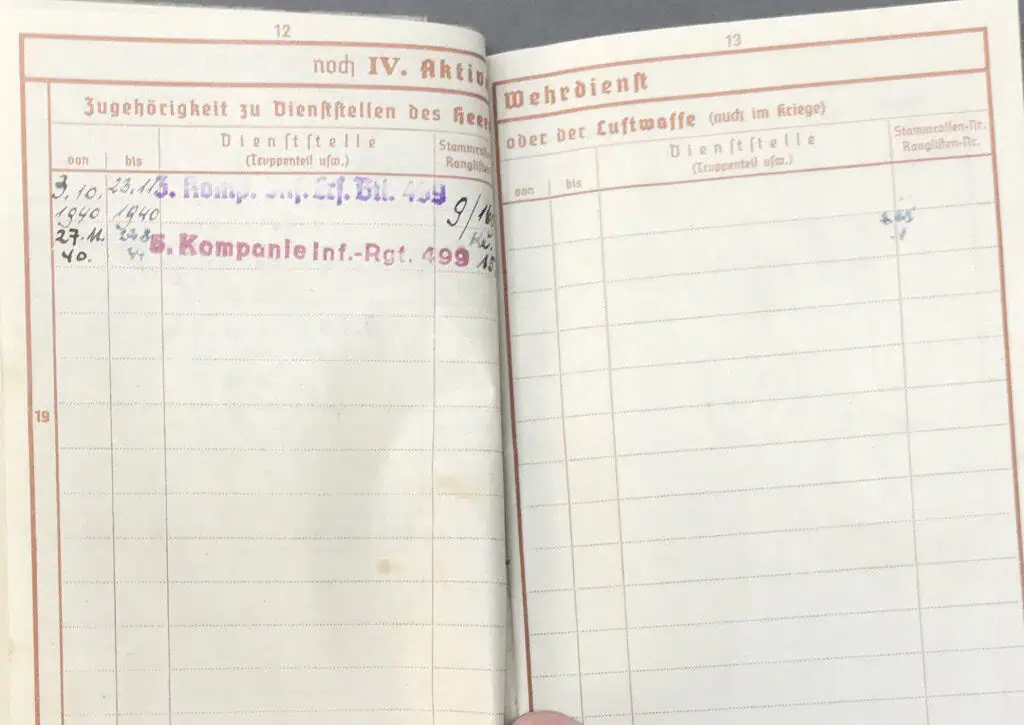 12
noch IV. Aktiv
Zugehörigkeit zu Dienststellen des Heer
von
bis
Dienststelle
(Truppenteil usw.)
Stammrol
Ranglist
3.10. 23.11. 3. Komp. Inf. Ers. Btl. 499
1940 1940 9/
27.11.
40. 5. Kompanie Inf.-Rgt. 499
19
13
Wehrdienst
oder der Luftwaffe (auch im Kriege)
von
bis
Dienststelle
(Truppenteil usw.)
Stammrollen-Nr.
Ranglisten-Nr.